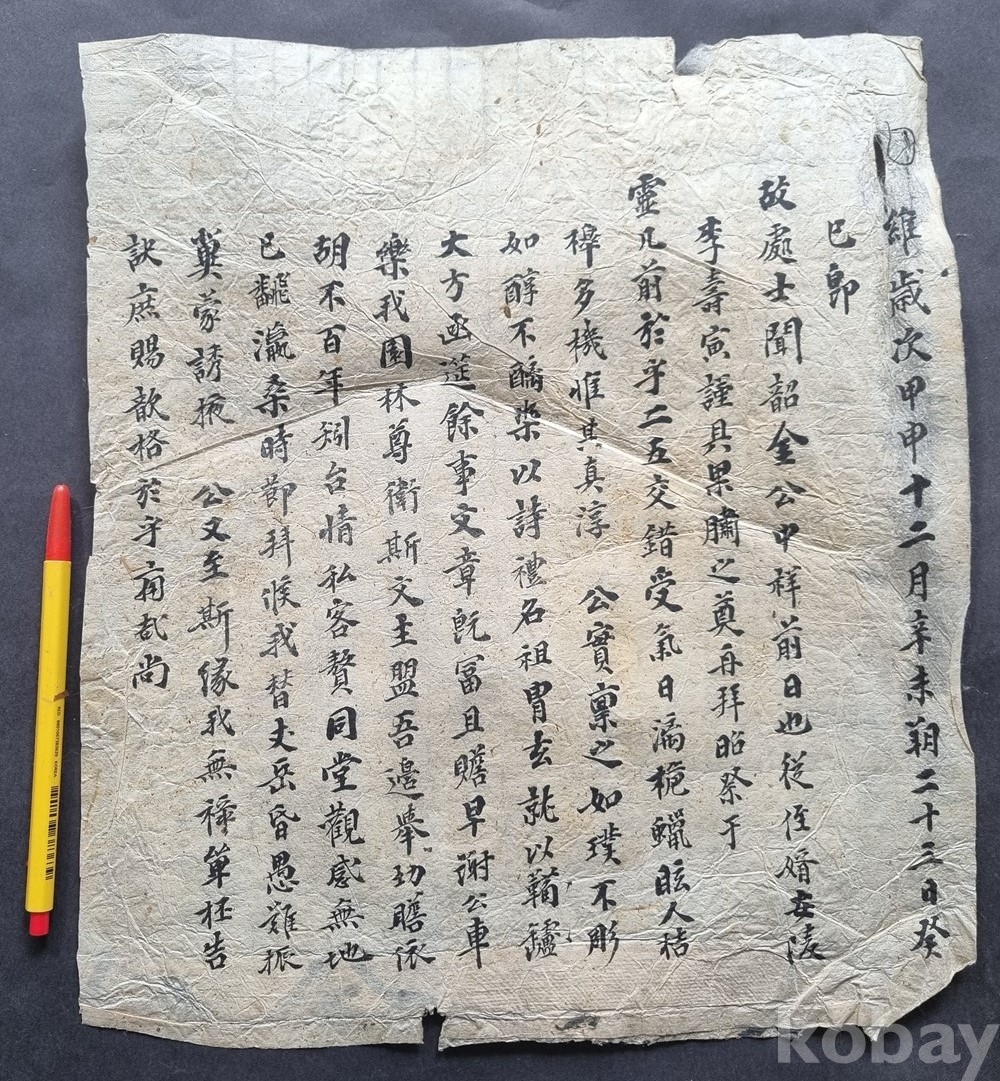 維歲次甲申十二月辛未朔二十三日癸
巳卽
故處士聞韶金公中祥前日也從侄婿宣陵
李壽寅謹具果脯之奠再拜昭祭于
靈几前於乎二五交錯受氣日漓梔蠟眩人桔
槹多機惟其真淳 公實禀之如璞不彫
如醇不醨樂以詩禮名祖胄玄就以韜鑪
大方函筵餘事文章旣富且贍早謝公車
樂我園林尊衛斯文主盟吾邊舉切瞻依
胡不百年矧台情私客贅同堂觀感無地
已飜瀛桑時節拜候我替丈岳昏愚難振
冀蒙誘掖 公又至斯緣我無稗單杯告
訣庶賜歆格於乎痛哉尚
kobay